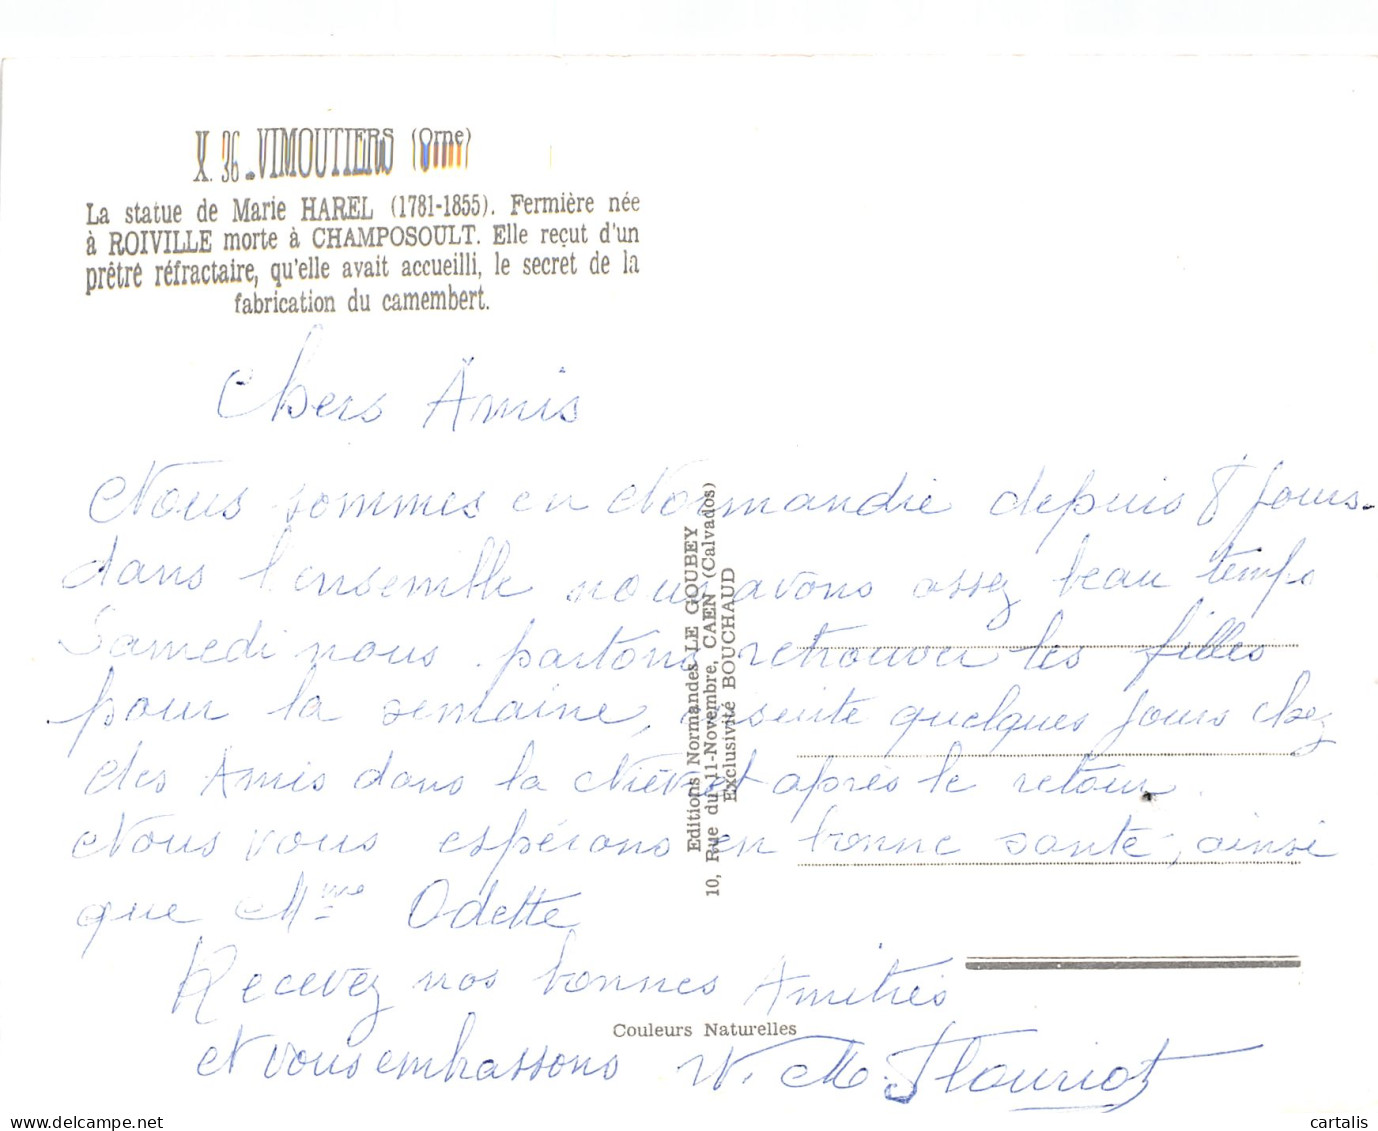 X. 36 - VIMOUTIERS (Orne)
La statue de Marie HAREL (1781-1855). Fermière née
à ROIVILLE morte à CHAMPOSOULT. Elle reçut d'un
prêtré réfractaire, qu'elle avait accueilli, le secret de la
fabrication du camembert.
Chers Amis
Nous sommes en Normandie depuis 8 jours.
dans l'ensemble nous avons assez beau temps
Samedi nous partons retrouver les filles
pour la semaine, ensuite quelques jours chez
des Amis dans la après le retour.
Nous vous espérons en bonne santé, ainsi
que Mme Odette
Recevez nos bonnes Amitiés
et vous embrassons M. Flouriot
Editions Normandes LE GOUBEY
10, Rue du 11-Novembre, CAEN (Calvados)
Exclusivité BOUCHAUD
Couleurs Naturelles
cartalis
www.delcampe.net